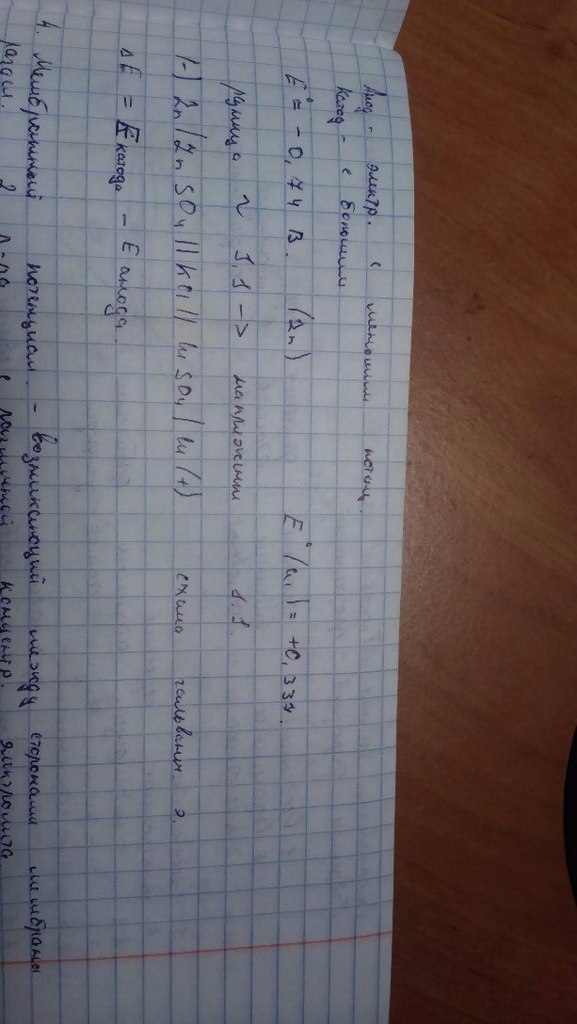 Анод - электр. с меньшим потенц.
Катод - с большим
E° = - 0,74 В. (Zn) E° (Cu) = +0,337.
разница ~ 1,1 -> напряжение 1.1.
(-) Zn | Zn SO4 || KCl || CuSO4 | Cu (+) схема гальванич. э.
ΔE = E катода - E анода.
4. Мембранный потенциал. - возникающий между сторонами мембраны
разд. 2 с различной концентр. электролита